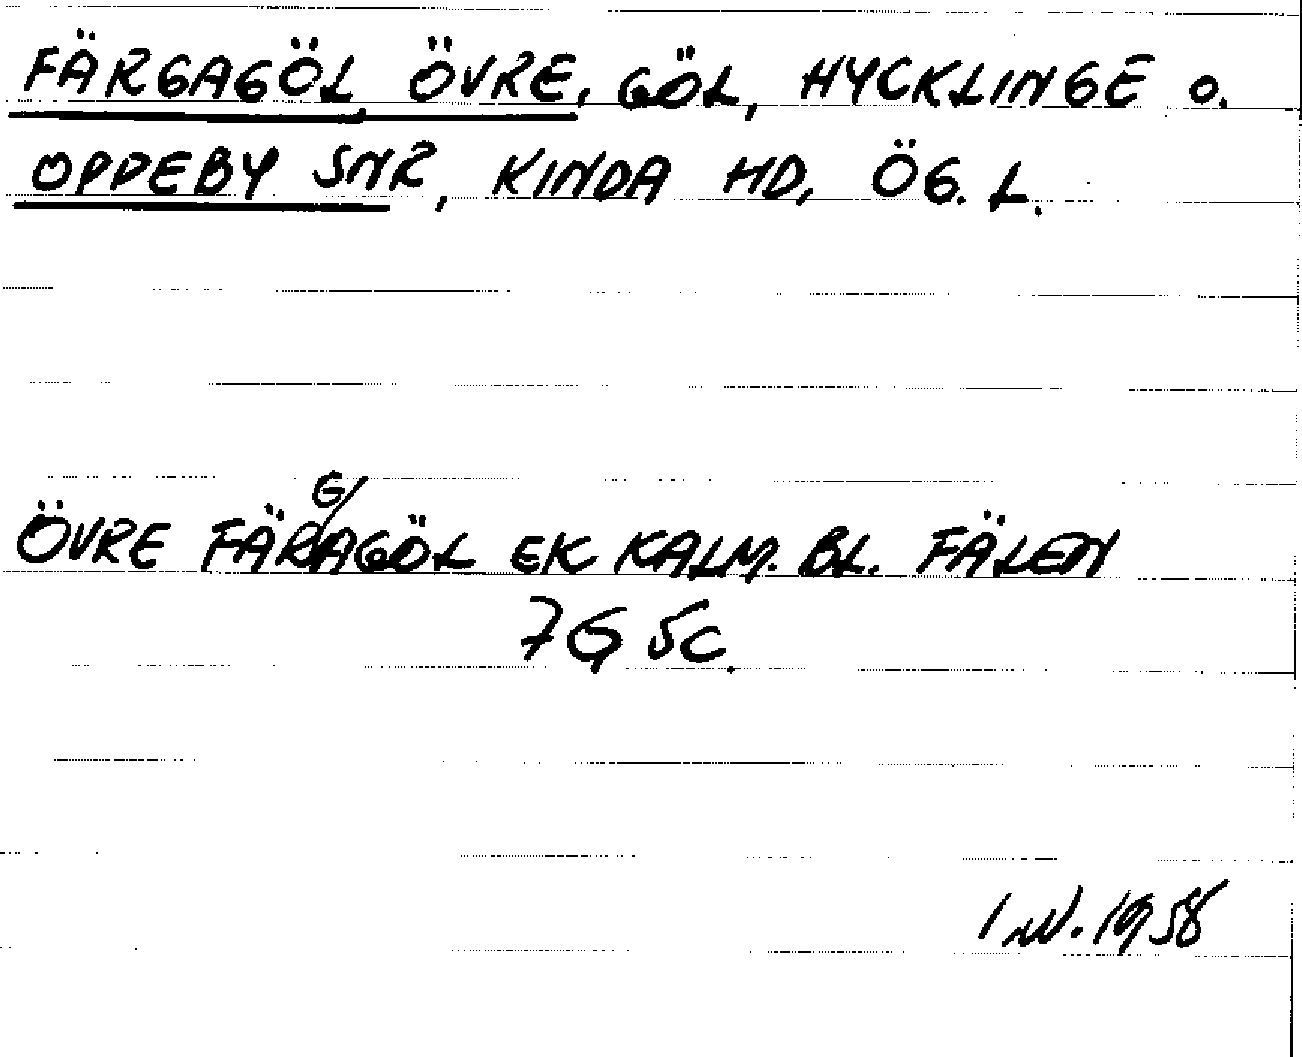 FÄRGAGÖL, ÖVRE, GÖL, HYCKLINGE O.
OPPEBY SNR, KINDA HD, ÖG. L.
ÖVRE FÄRGAGÖL EK KALM. BL. FÄLEN
7G 5c.
1958